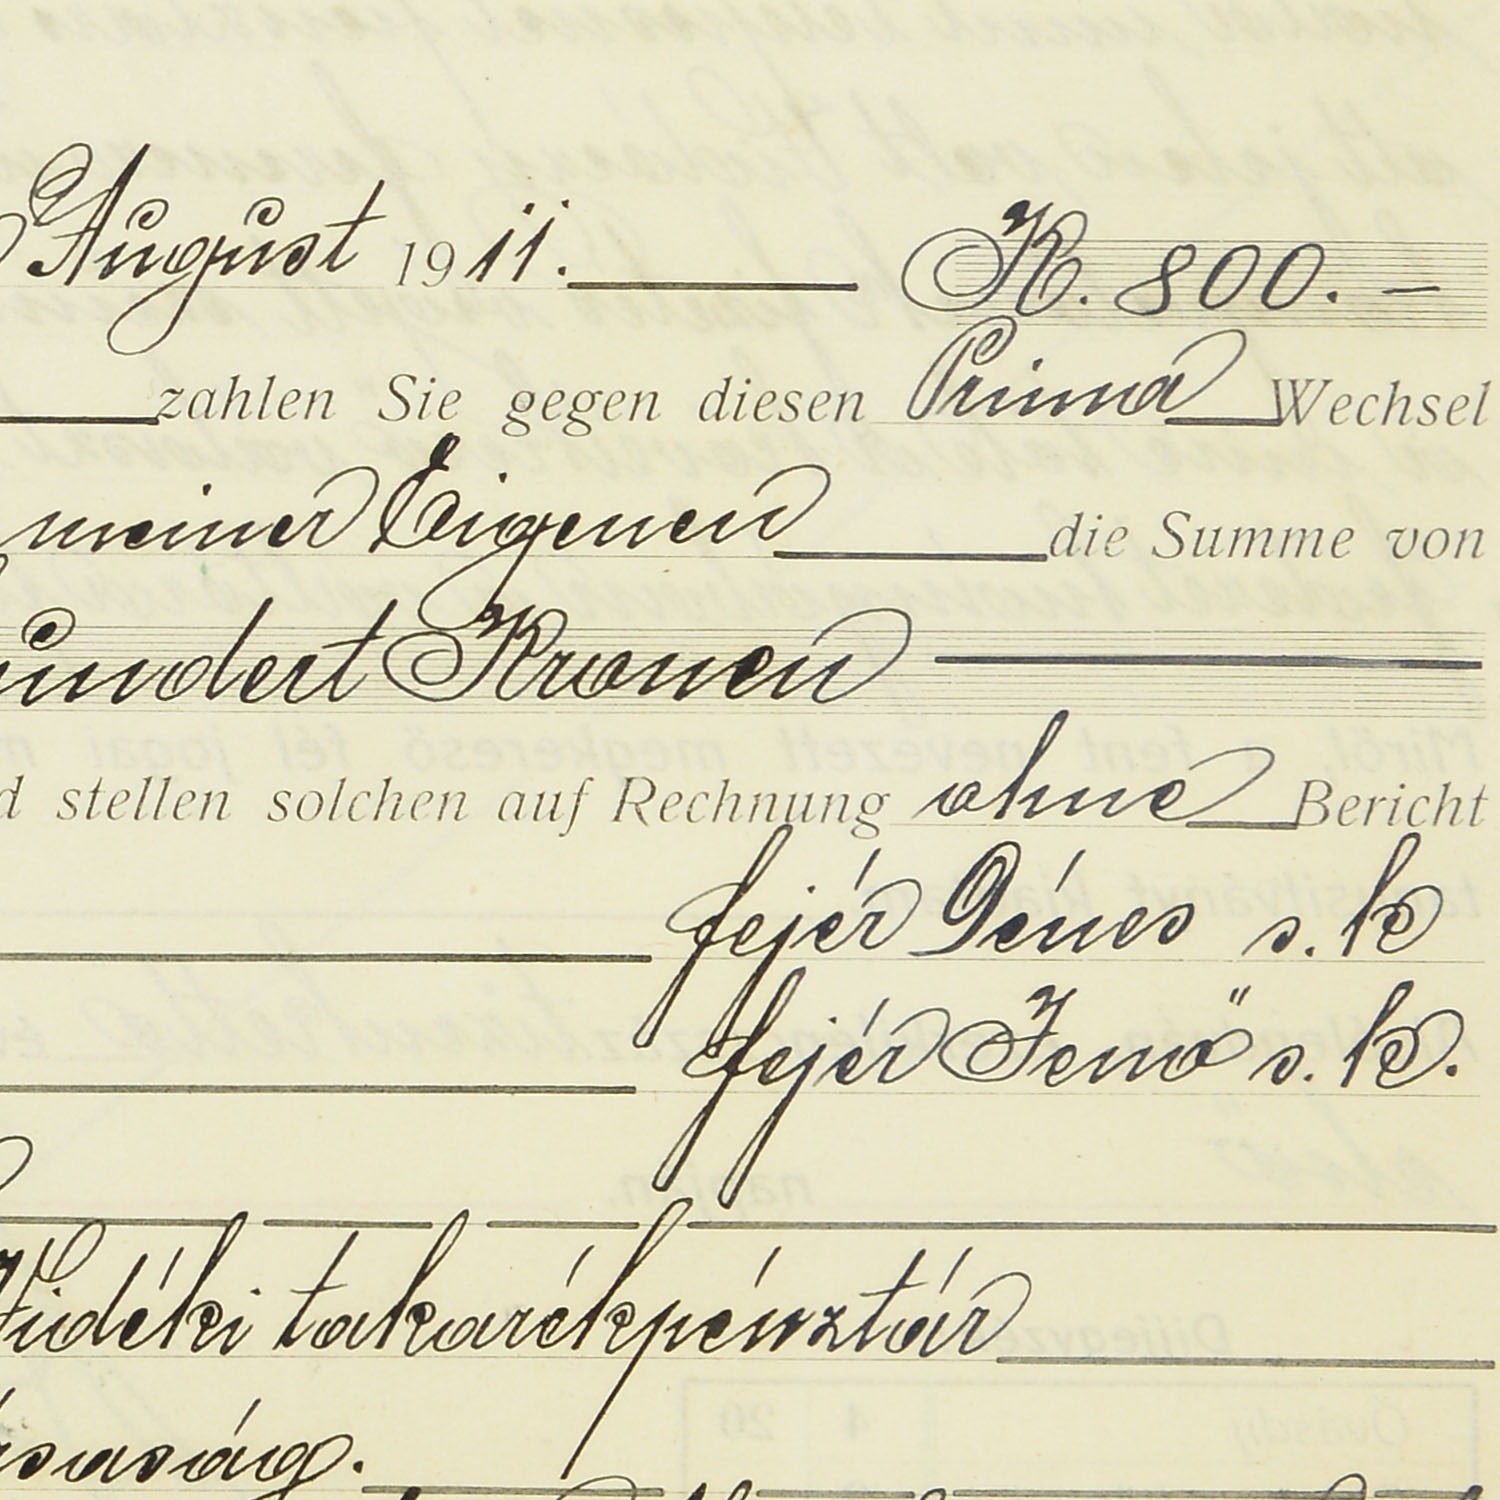 August 1911. K. 800. –
zahlen Sie gegen diesen Prima Wechsel
meiner Eigenen die Summe von
hundert Kronen
stellen solchen auf Rechnung ohne Bericht
fejér Dénes s. k
fejér Jenö s. k.
Vidéki takarékpénztár